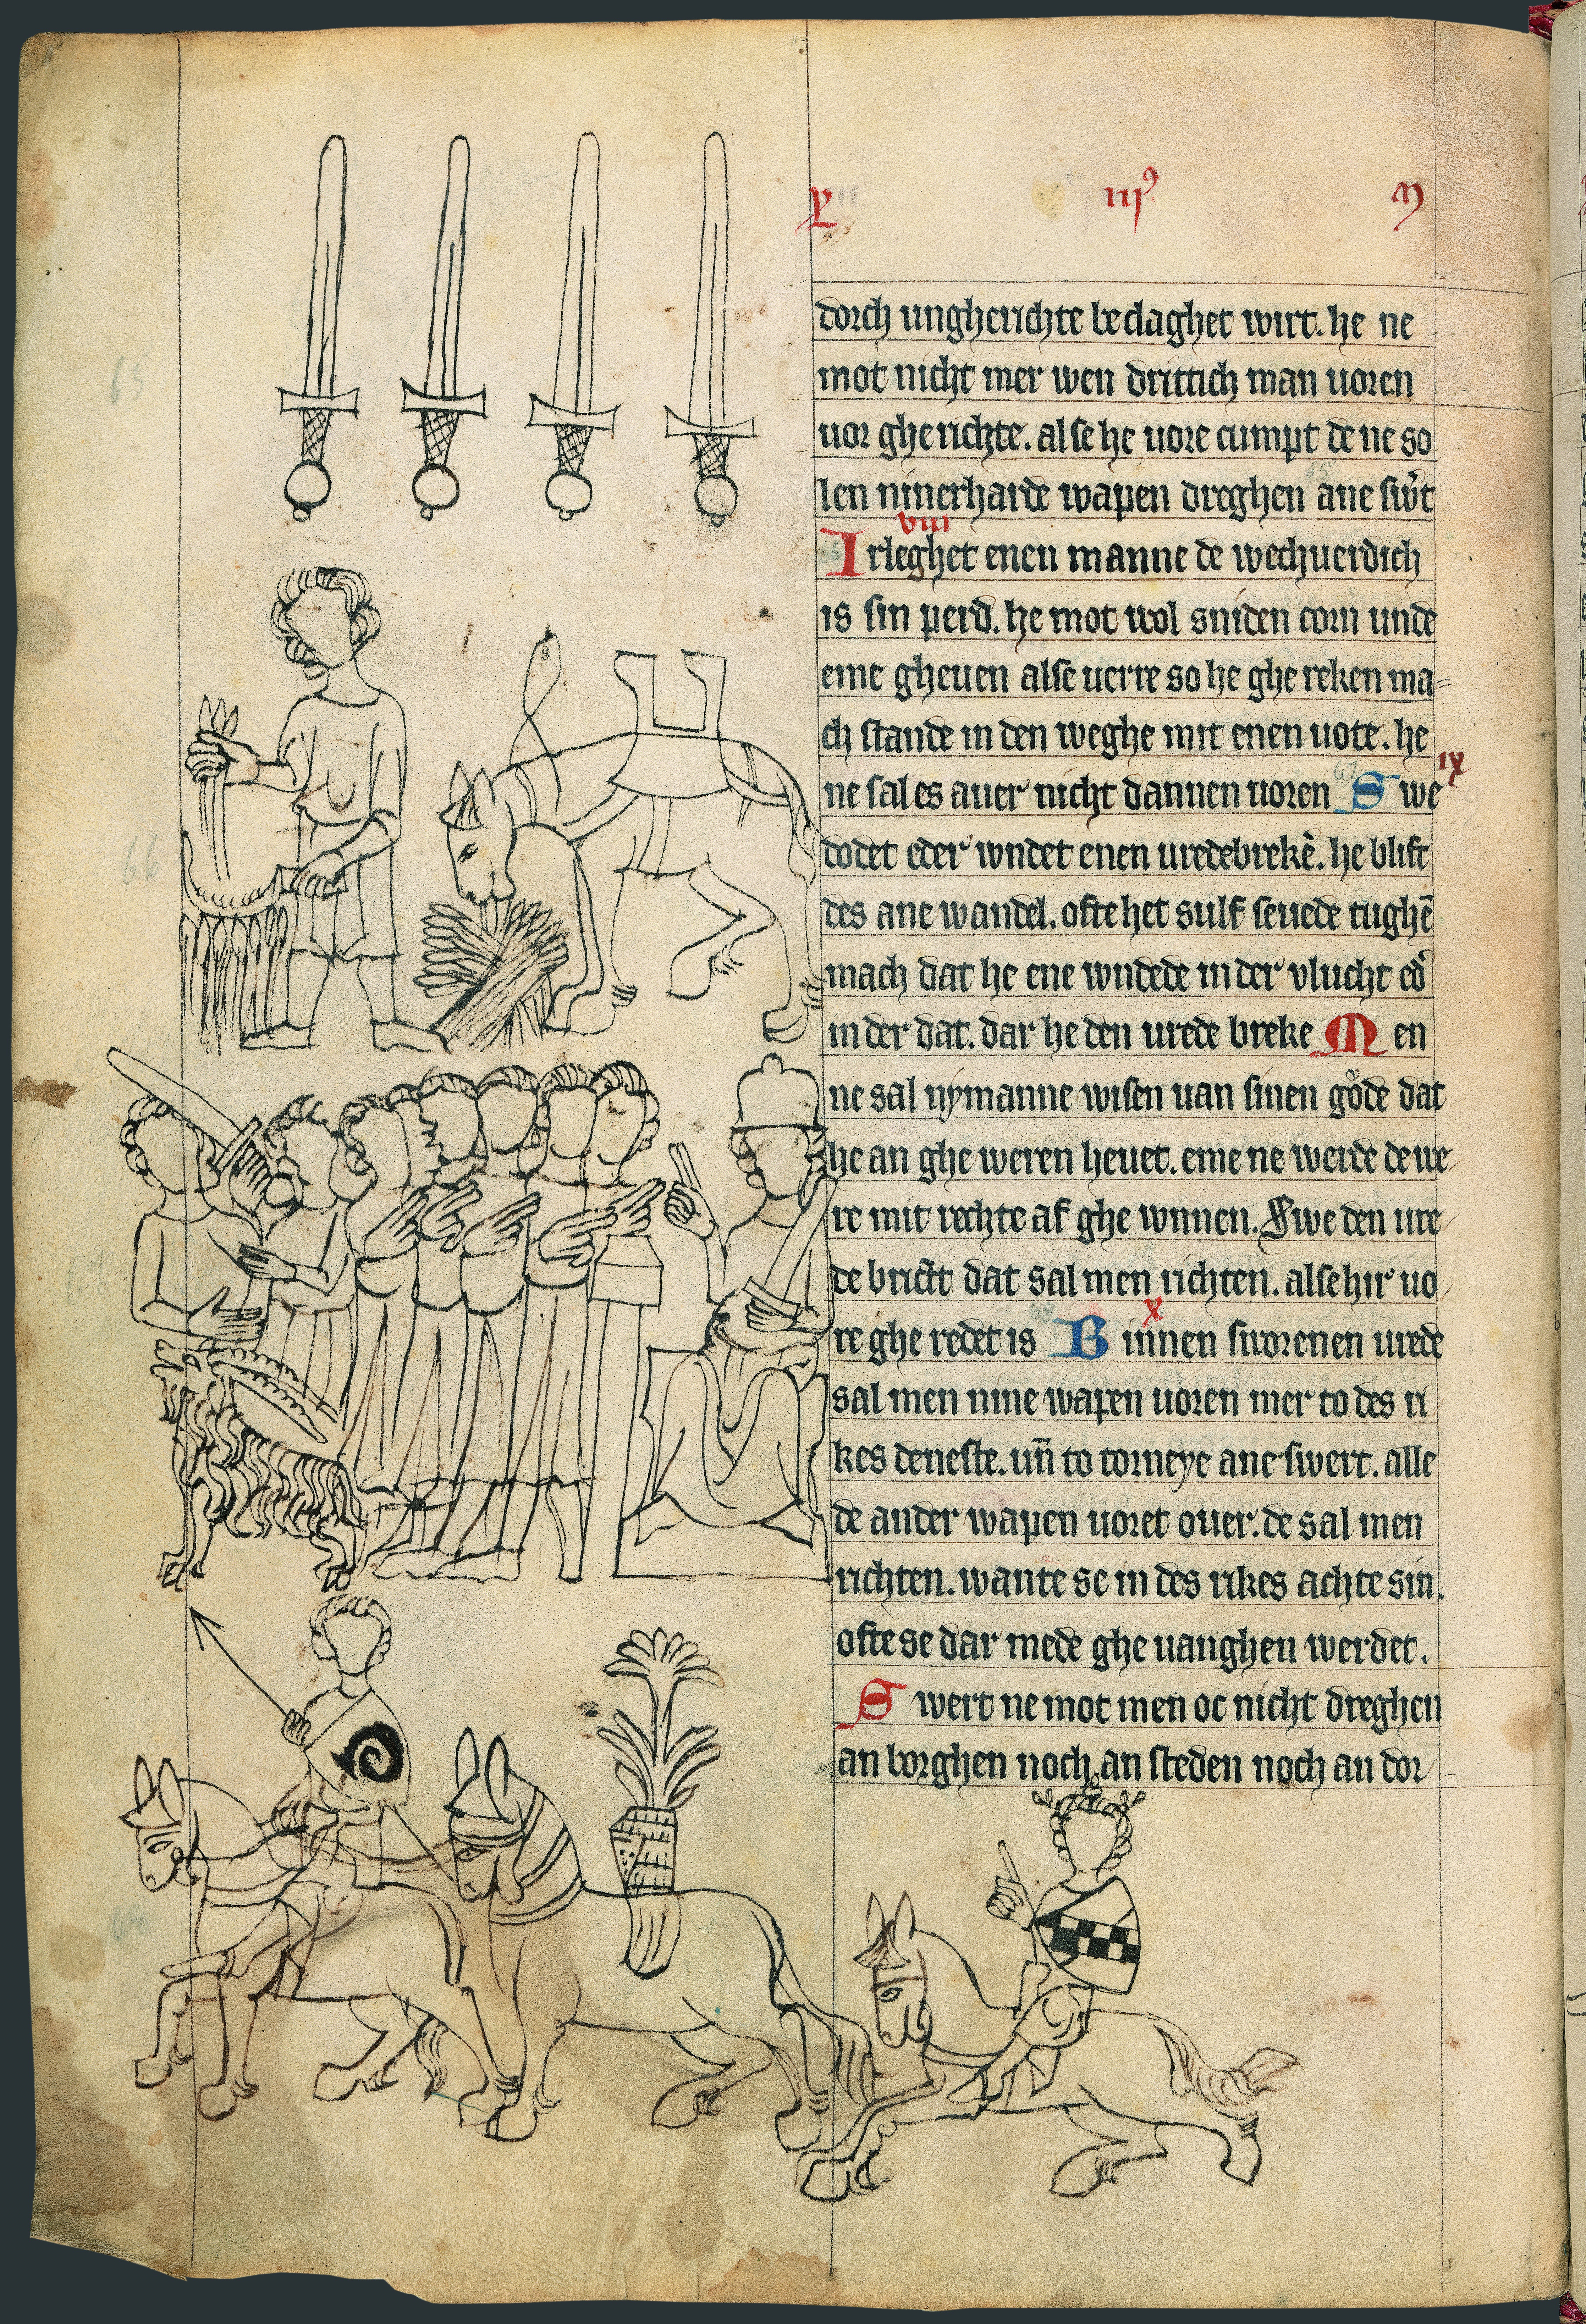 L iijꝰ m
dorch ungherichte beclaghet wirt. he ne
mot nicht mer wen drittich man uoren
uor gherichte. alse he uore cumpt de ne so
len ninerharde wapen dreghen ane sw̉t
viii
Irleghet enen manne de wechuerdich
is sin perd. he mot wol sniden corn unde
eme gheuen alse uerre so he ghe reken ma=
ch stande in den weghe mit enen uote. he
ne sal es auer nicht dannen uoren Swe ix
dodet eder wndet enen uredebrekē. he blift
des ane wandel. ofte het sulf seuede tughē
mach dat he ene wndede in der vlucht ed̉
in der dat. dar he den urede breke Men
ne sal nymanne wisen uan sinen gůde dat
he an ghe weren heuet. eme ne werde de we/
re mit rechte af ghe wnnen. Swe den ure/
de brict dat sal men richten. alse hir uo/
re ghe redet is Binnen sworenen urede x
sal men nine wapen uoren mer to des ri
kes deneste. un̄ to torneye ane swert. alle
de ander wapen uoret ouer. de sal men
richten. wante se in des rikes achte sin.
ofte se dar mede ghe uanghen werdet.
Swert ne mot men oc nicht dreghen
an borghen noch an steden noch an dor/
65
66